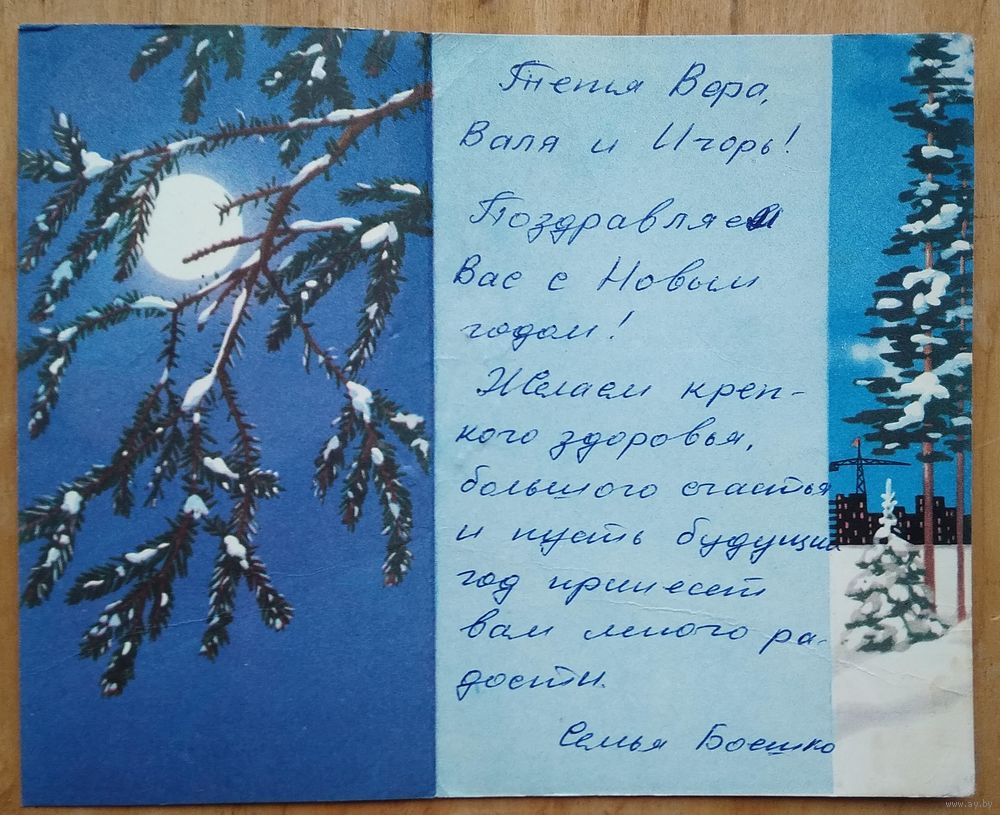 Тетя Вера,
Валя и Игорь!
Поздравляем
Вас с Новым
годом!
Желаем креп-
кого здоровья,
большого счастья
и пусть будущий
год принесет
вам много ра-
дости.
Семья Боешко
www.ay.by